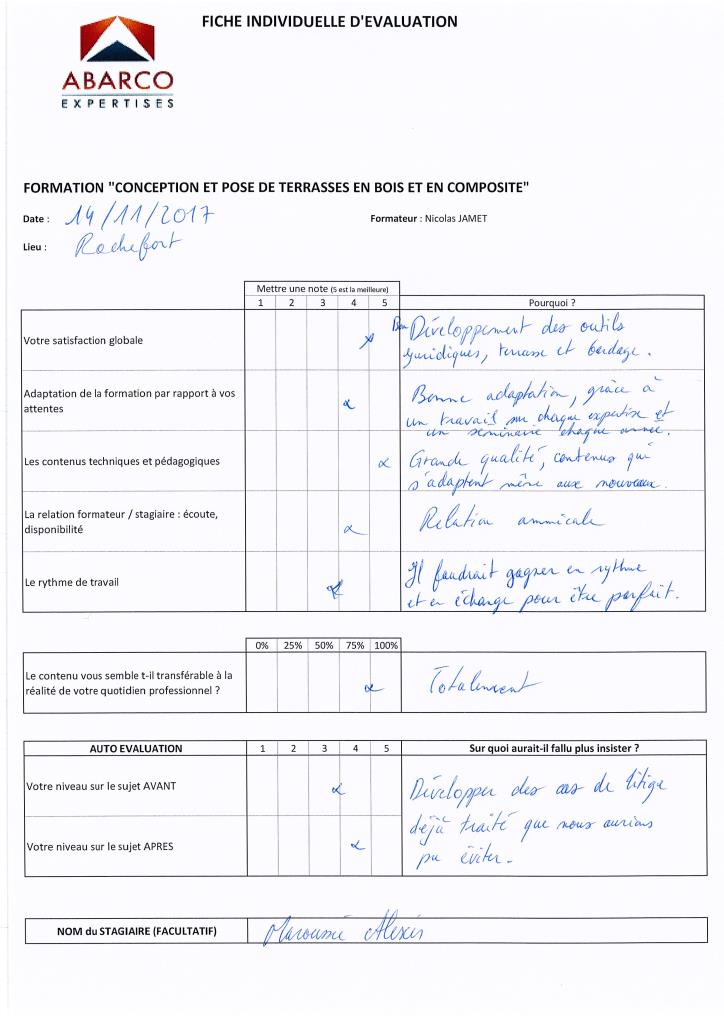 FICHE INDIVIDUELLE D'EVALUATION
ABARCO
EXPERTISES
FORMATION "CONCEPTION ET POSE DE TERRASSES EN BOIS ET EN COMPOSITE"
Date : 14/11/2017
Formateur : Nicolas JAMET
Lieu : Rochefort
Mettre une note (5 est la meilleure)
1 2 3 4 5 Pourquoi ?
Votre satisfaction globale
Bon Développement des outils
juridiques, terrasse et bardage.
Adaptation de la formation par rapport à vos
attentes
Bonne adaptation, grâce à
un travail sur chaque expertise et
un séminaire chaque année.
Les contenus techniques et pédagogiques
Grande qualité, contenus qui
s'adaptent même aux nouveaux.
La relation formateur / stagiaire : écoute,
disponibilité
Relation ammicale
Le rythme de travail
Il faudrait gagner en rythme
et en échange pour être parfait.
0% 25% 50% 75% 100%
Le contenu vous semble t-il transférable à la
réalité de votre quotidien professionnel ?
Totalement
AUTO EVALUATION 1 2 3 4 5 Sur quoi aurait-il fallu plus insister ?
Votre niveau sur le sujet AVANT
Développer des cas de litige
déjà traité que nous aurions
pu éviter.
Votre niveau sur le sujet APRES
NOM du STAGIAIRE (FACULTATIF)
Alexis